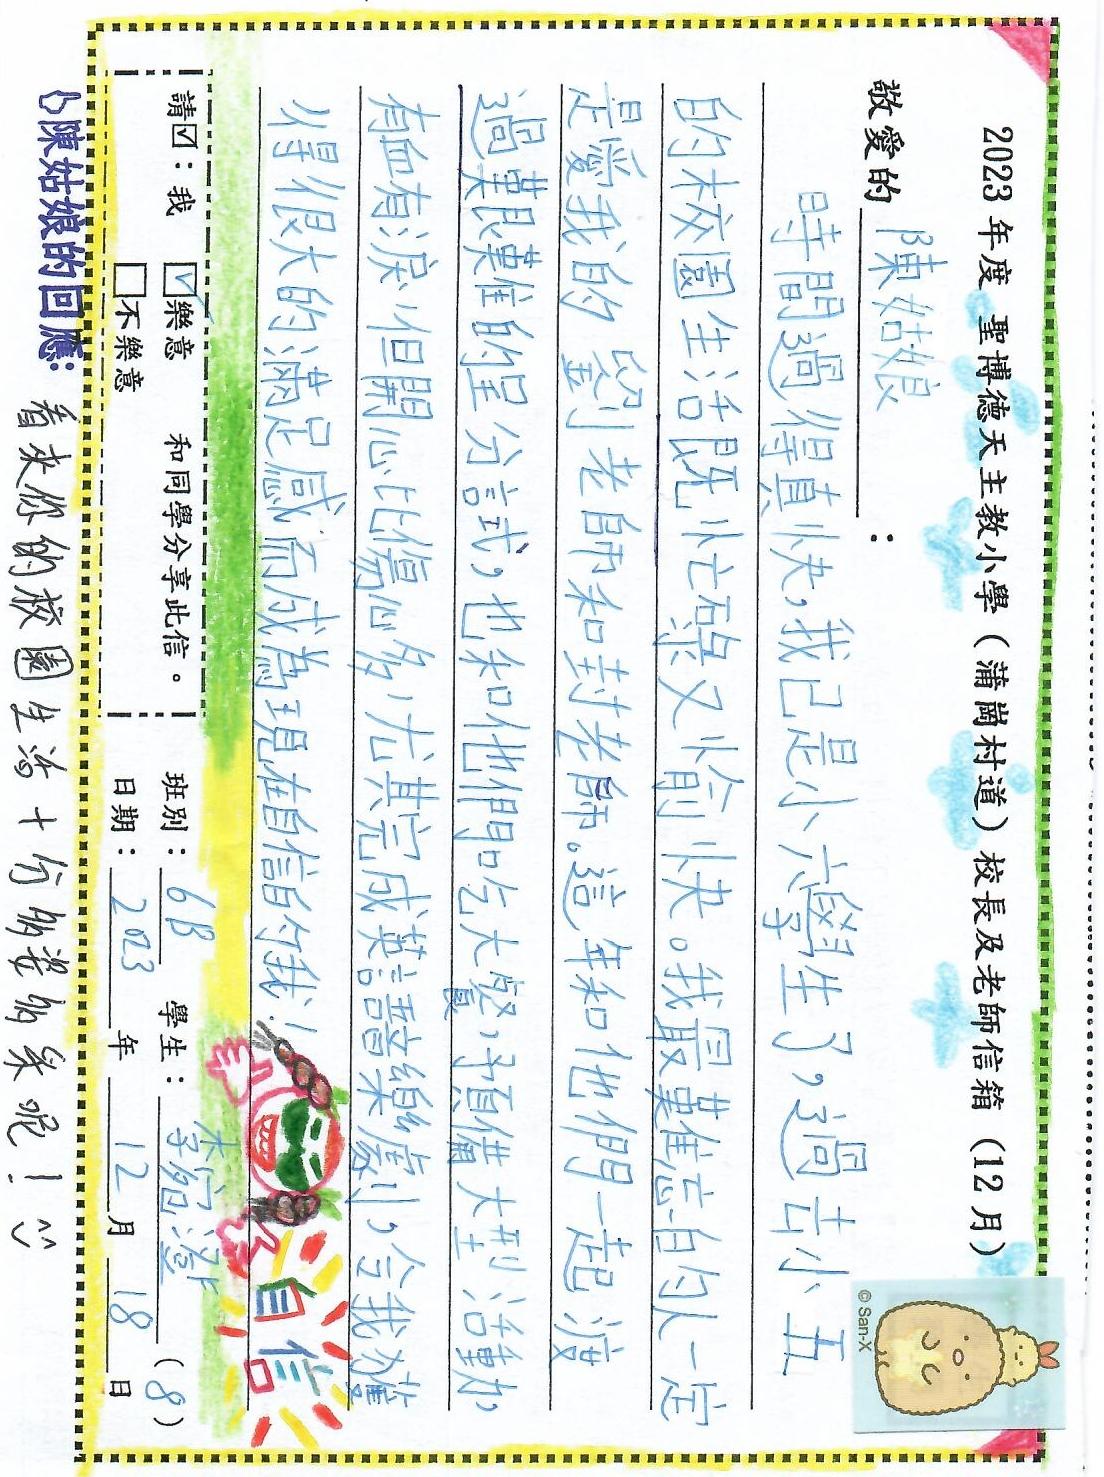 2023 年度 聖博德天主教小學（蒲崗村道）校長及老師信箱（12月）
敬愛的 陳姑娘 ：
時間過得真快，我已是小六學生了，過去小五
的校園生活既忙碌又愉快。我最難忘的人一定
是愛我的 劉老師和封老師。這一年和他們一起渡
過艱難的呈分試，也和他們吃大餐，預備大型活動，
有血有淚，但開心比傷心多，尤其完成英語音樂劇，令我獲
得很大的滿足感而成為現在自信的我！
自信
© San-X
請☑：我 ☑樂意 和同學分享此信。
□不樂意
班別：6B 學生： (8)
日期：2023 年 12 月 18 日
陳姑娘的回應：看來你的校園生活十分多姿多采呢！^^